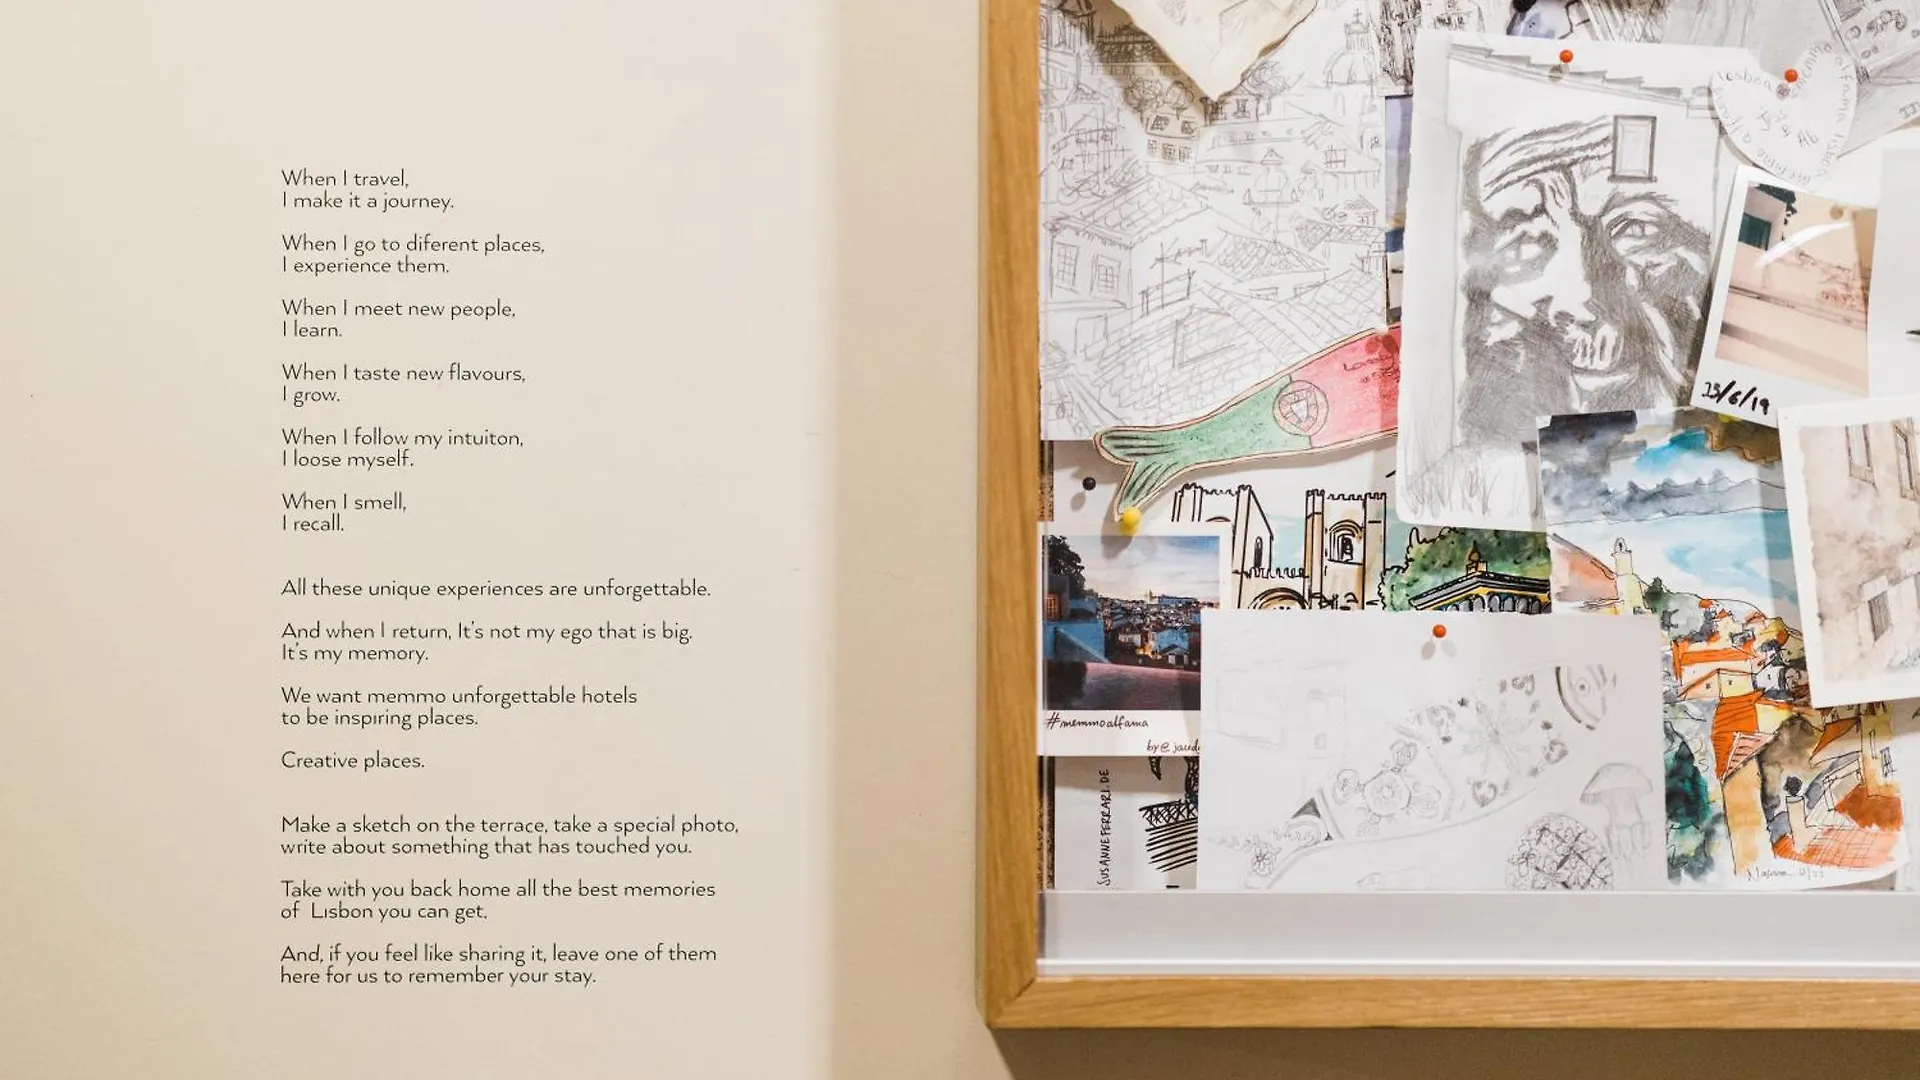 When I travel,
I make it a journey.
When I go to diferent places,
I experience them.
When I meet new people,
I learn.
When I taste new flavours,
I grow.
When I follow my intuiton,
I loose myself.
When I smell,
I recall.
All these unique experiences are unforgettable.
And when I return, It's not my ego that is big.
It's my memory.
We want memmo unforgettable hotels
to be inspiring places.
Creative places.
Make a sketch on the terrace, take a special photo,
write about something that has touched you.
Take with you back home all the best memories
of Lisbon you can get.
And, if you feel like sharing it, leave one of them
here for us to remember your stay.
lisboa
memmo alfama
13/6/19
#memmoalfama
by @
SUSANNEFERRARI.DE